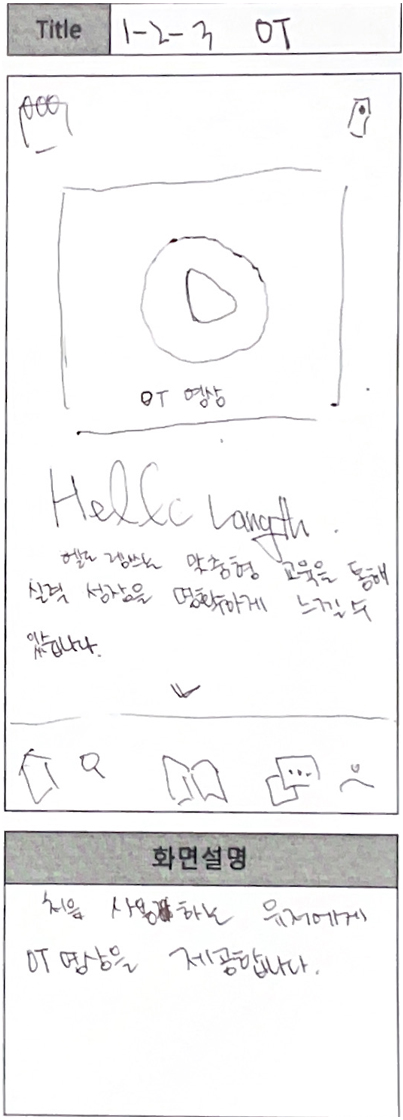 Title 1-2-3 OT
OT 영상
Hello Langth.
헬로 랭쓰는 맞춤형 교육을 통해
실력 성장을 명확하게 느낄 수
있습니다.
화면설명
처음 사용하는 유저에게
OT 영상을 제공합니다.